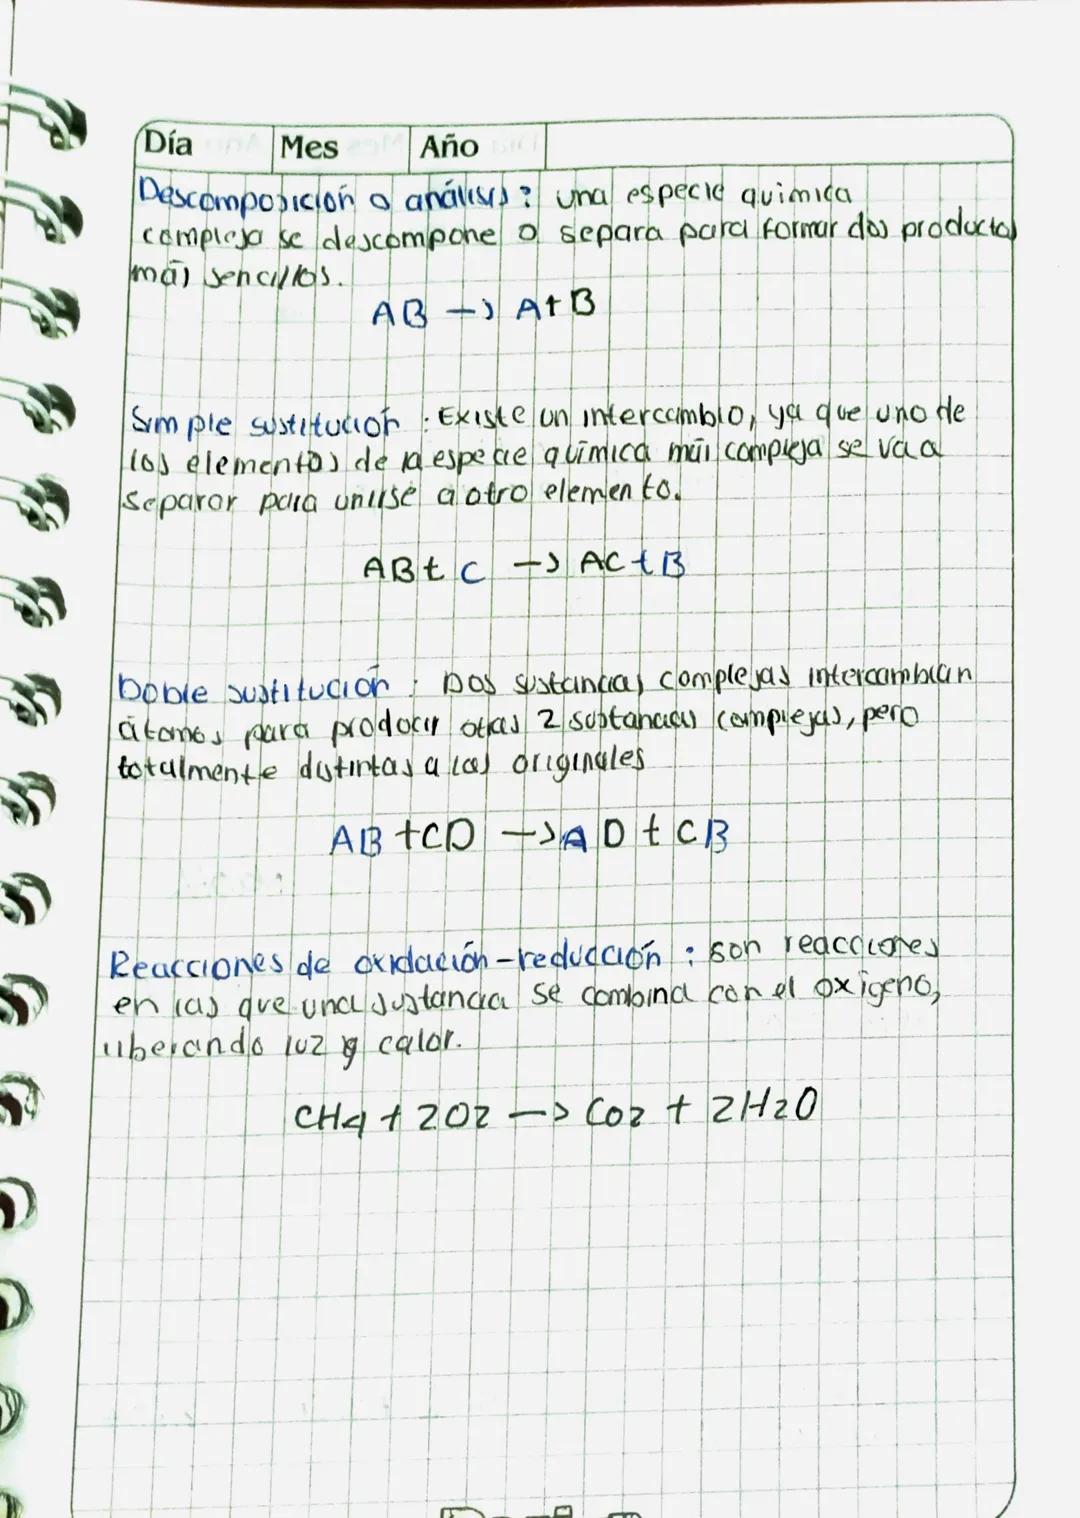 Día Mes Año
Descomposición o análisis: una especie quimica
compleja se descompone o separa para formar dos productos
más sencillos.
AB → A+B
Simple sustitución : Existe un intercambio, ya que uno de
los elementos de la especie química más compleja se va a
separar para unirse a otro elemento.
AB + C → AC + B
Doble sustitución : Dos sustancias complejas intercambian
átomos para producir otras 2 sustancias complejas, pero
totalmente distintas a las originales
AB + CD → AD + CB
Reacciones de oxidación-reducción : son reacciones
en las que una sustancia se combina con el oxígeno,
liberando luz y calor.
CH4 + 2O2 → CO2 + 2H2O